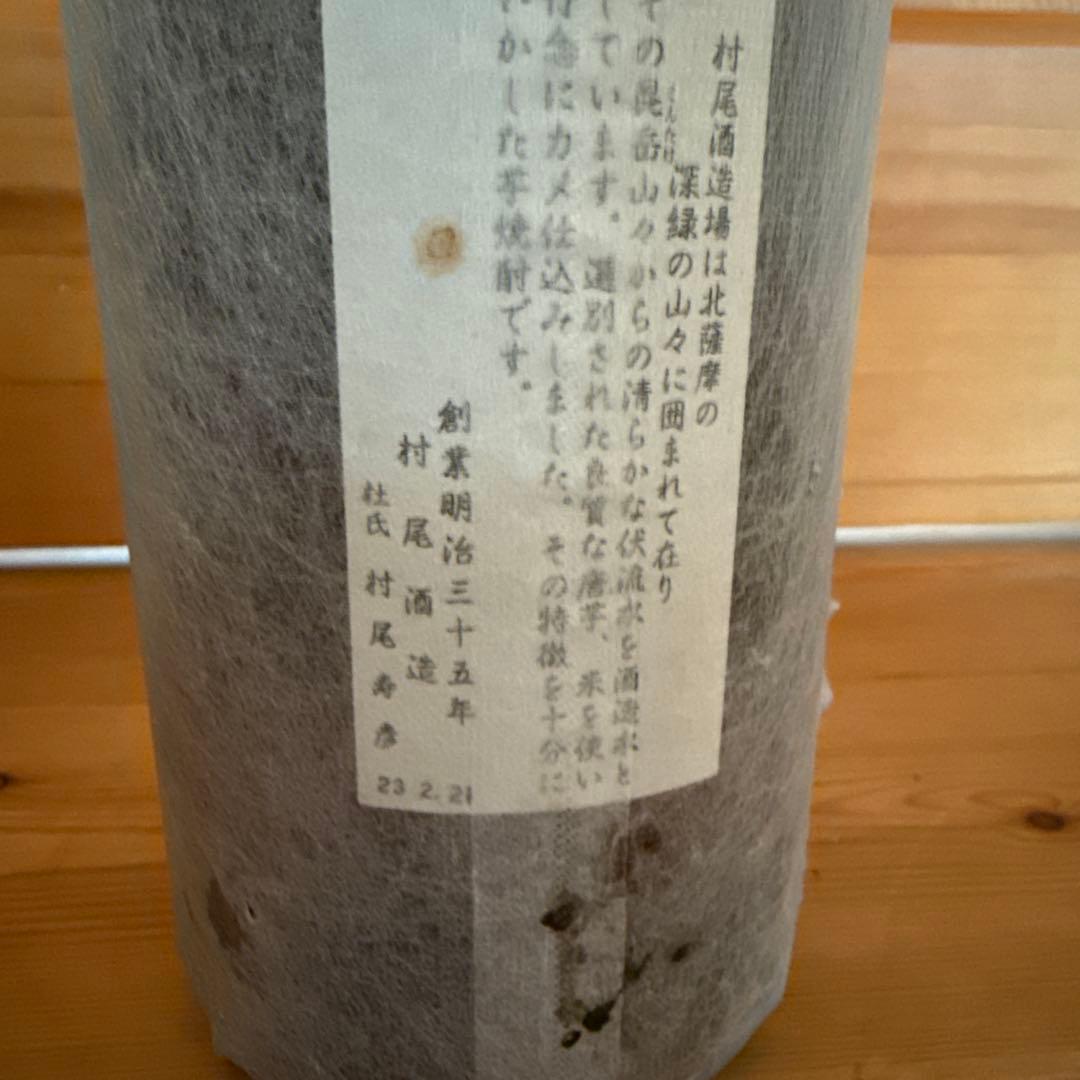 村尾酒造場は北薩摩の
深緑の山々に囲まれて在り
その昆岳山々からの清らかな伏流水を酒造水と
しています。選別された良質な唐芋、米を使い
念にカメ仕込みしました。その特徴を十分に
かした芋焼酎です。
創業明治三十五年
村尾酒造
杜氏 村尾寿彦
23.2.21